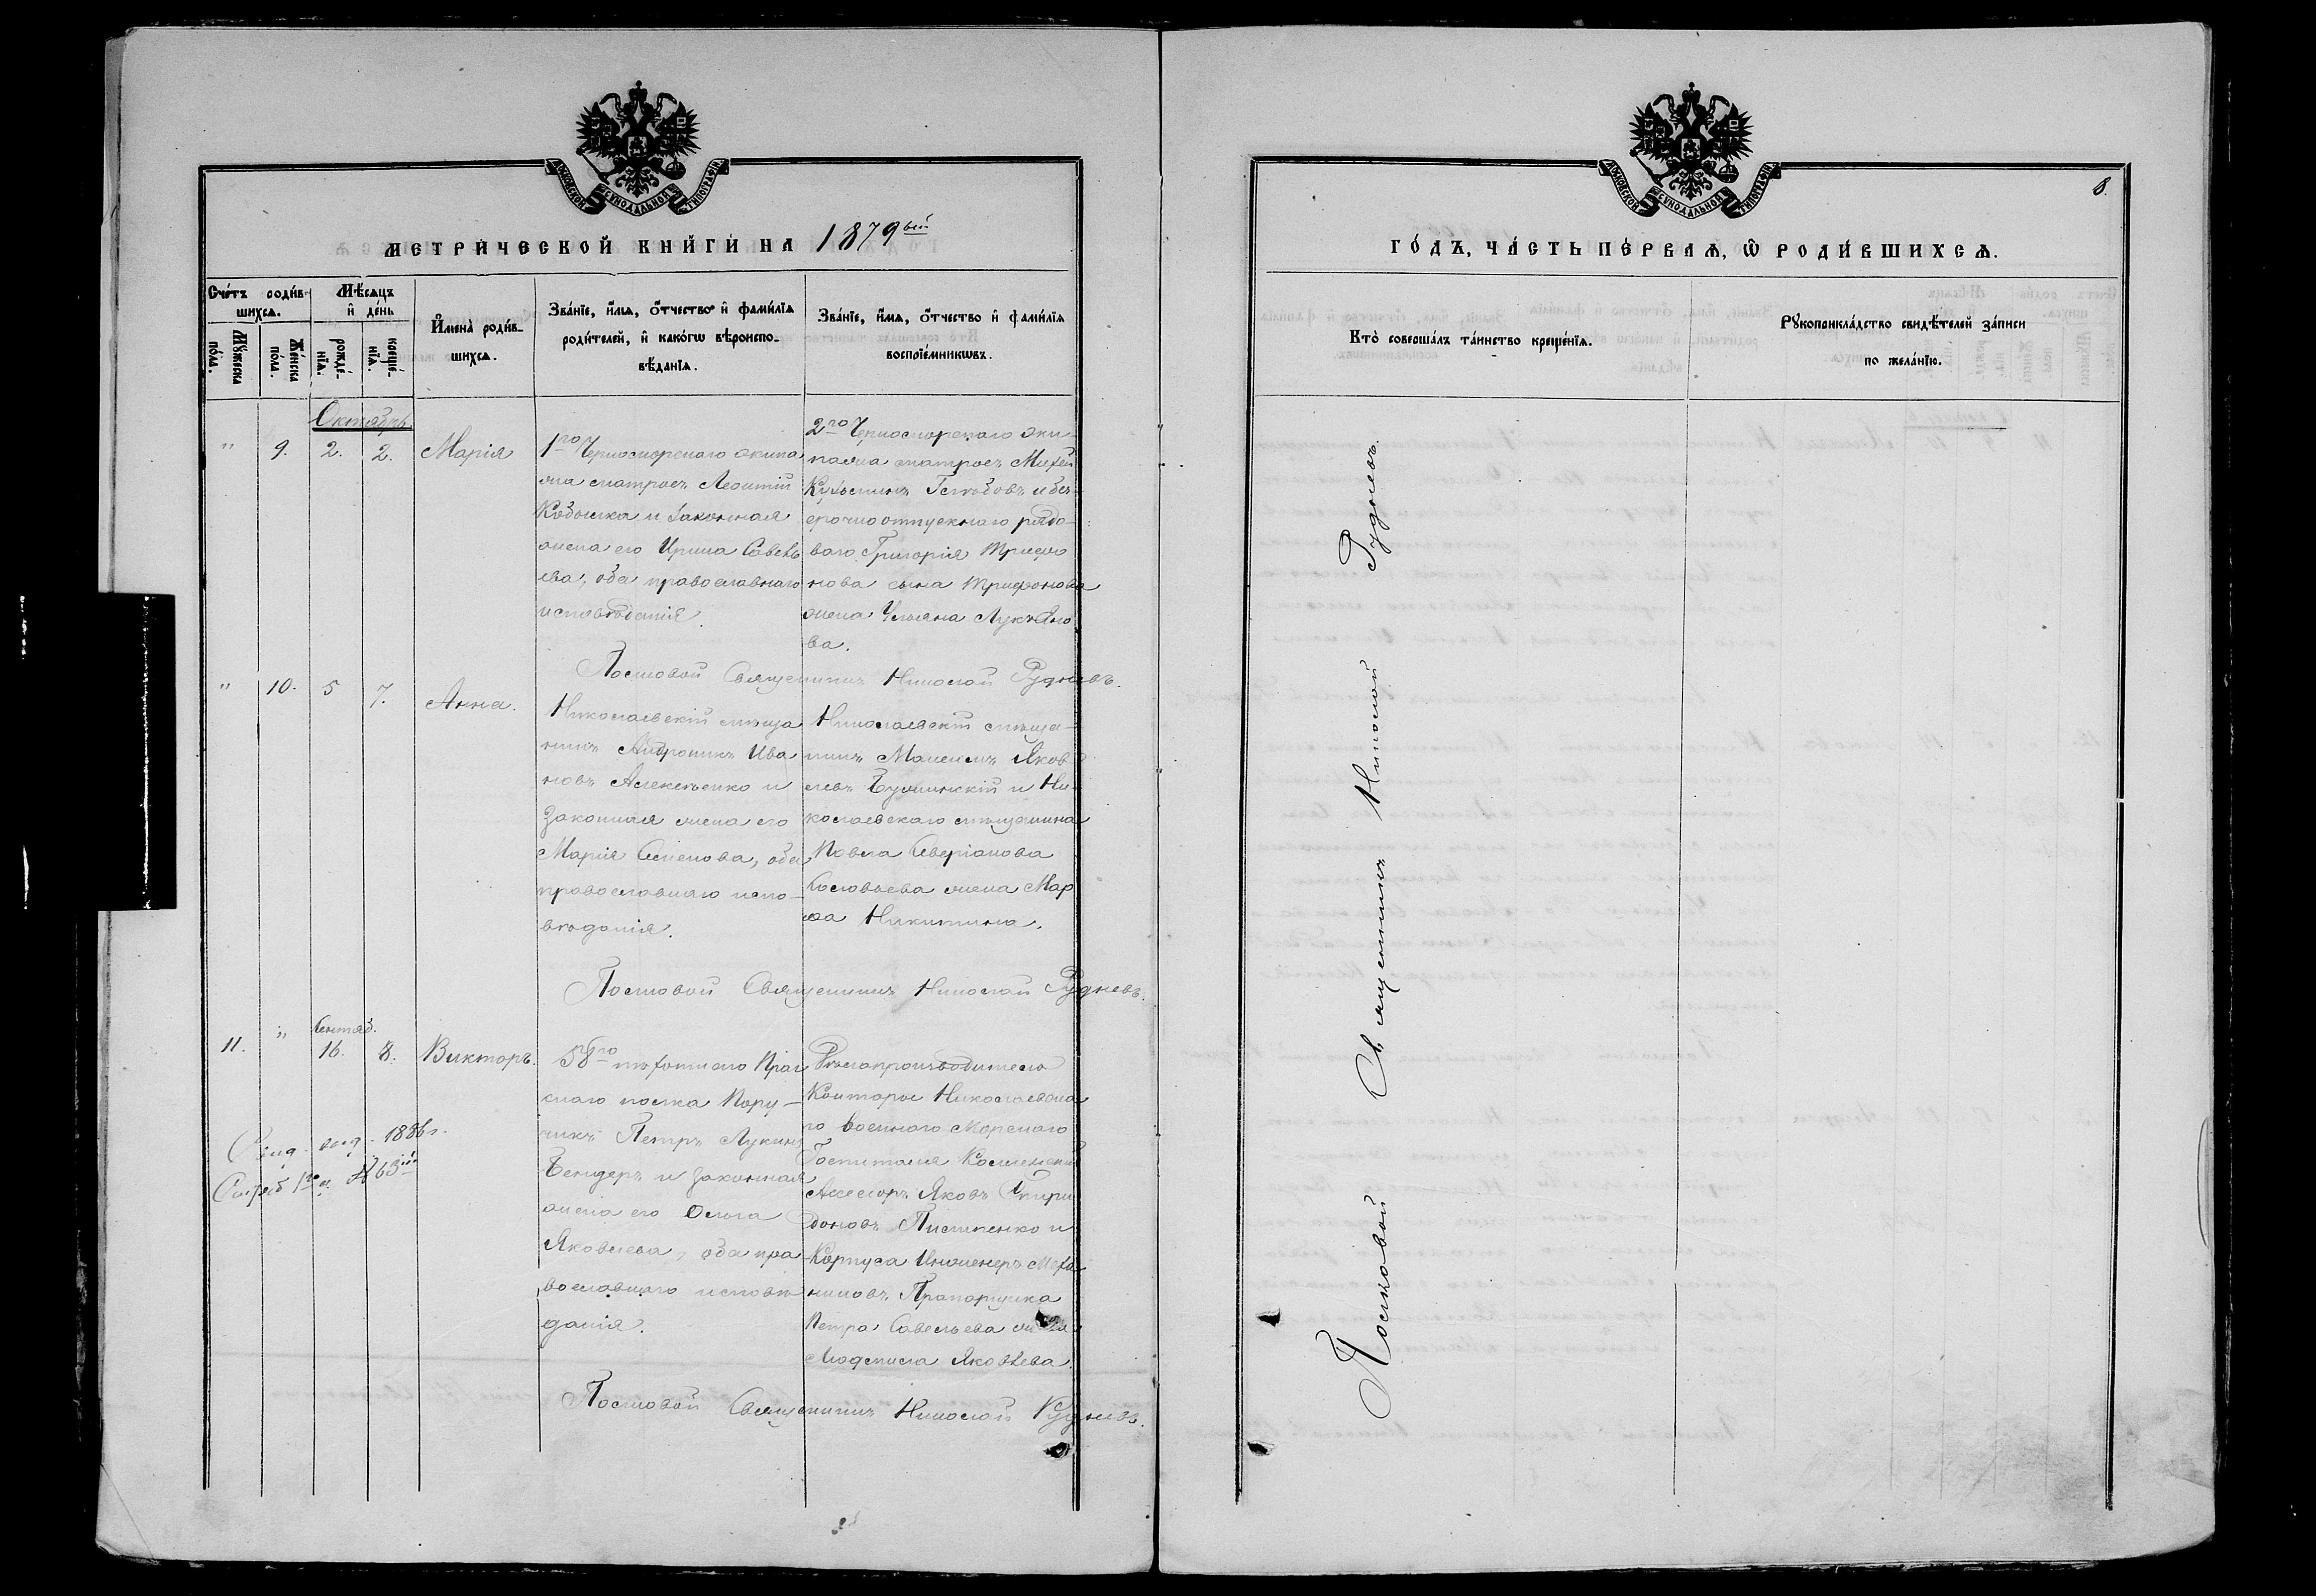 МОСКОВСКОЙ СѴНОДАЛЬНОЙ ТИПОГРАФІИ
МЕТРИЧЕСКОЙ КНИГИ НА 1879ый
Счетъ родив-
шихся.
Мужеска пола.
Женска пола.
Мѣсяцъ
и день
рожде-
нія.
креще-
нія.
Имена родив-
шихся.
Званіе, имя, отчество и фамилія
родителей, и какогѡ вѣроиспо-
вѣданія.
Званіе, имя, отчество и фамилія
воспріемникѡвъ.
Октябрь
" 9. 2. 2. Марія
1го Черноморскаго экипа
жа матросъ Леонтій
и законная
жена его Ирина Савель
ева, оба православнаго
исповѣданія.
2го Черноморскаго эки-
пажа матросъ Михей
Кузьминъ и без-
срочноотпускнаго рядо-
ваго Григорія Трифо
нова сына Трифонова
жена Ульяна Лукьяно
ва.
Полковой Священникъ Николай Рудневъ.
" 10. 5 7. Анна.
Николаевскій мѣща
нинъ Андроникъ Ива
новъ Алексѣенко и
законная жена его
Марія Семенова, оба
православнаго испо-
вѣданія.
Николаевскій мѣща-
нинъ Максимъ Яков
левъ и Ни-
колаевскаго мѣщанина
Павла Аверіанова
Соловьева жена Мар
ѳа Никитина.
Полковой Священникъ Николай Рудневъ.
Сентяб.
11. " 16. 8. Викторъ.
58го пѣхотнаго Праг
скаго полка Пору-
чикъ Петръ Лукинъ
Бендеръ и законная
жена его Ольга
Яковлева, оба пра
вославнаго исповѣ
данія.
Дѣлопроизводитель
Конторы Николаевска
го военнаго Морскаго
Госпиталя Коллежскій
Ассесоръ Яковъ Спири
доновъ и
Корпуса Инженеръ Меха
никовъ Прапорщика
Петра Савельева
Людмила Яковлева.
1886г.
№ 63й
Полковой Священникъ Николай Рудневъ.
МОСКОВСКОЙ СѴНОДАЛЬНОЙ ТИПОГРАФІИ
8.
ГОДЪ, ЧАСТЬ ПЕРВАЯ, Ѡ РОДИВШИХСЯ.
Кто совершалъ таинство крещенія.
Рукоприкладство свидѣтелей записи
по желанію.
Полковой Священникъ Николай Рудневъ.